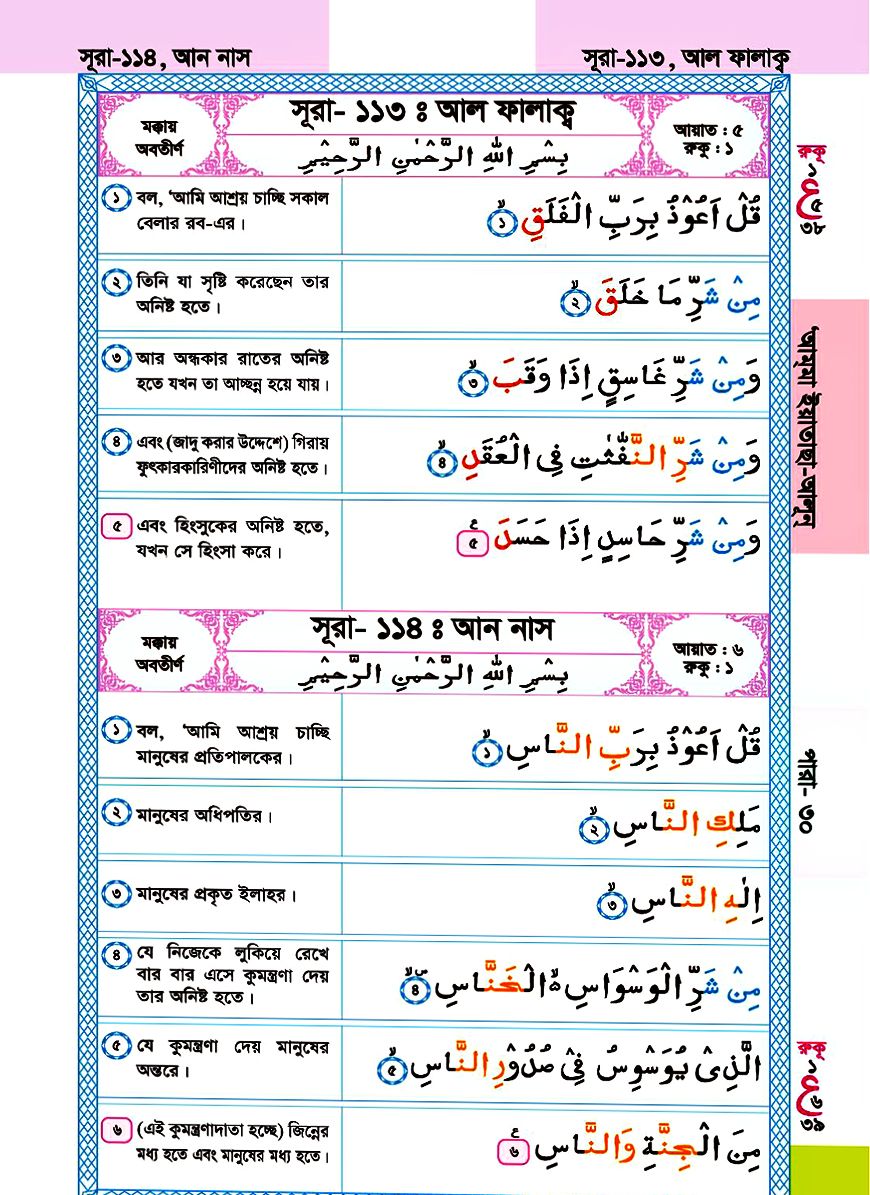 সূরা-১১৪, আন নাস
সূরা-১১৩, আল ফালাক্ব
মক্কায়
অবতীর্ণ
সূরা- ১১৩ ঃ আল ফালাক্ব
بِسْمِ اللّٰهِ الرَّحْمٰنِ الرَّحِيْمِ
আয়াত : ৫
রুকু : ১
১ বল, ‘আমি আশ্রয় চাচ্ছি সকাল
বেলার রব-এর।
قُلْ اَعُوْذُ بِرَبِّ الْفَلَقِ ۙ ১
২ তিনি যা সৃষ্টি করেছেন তার
অনিষ্ট হতে।
مِنْ شَرِّ مَا خَلَقَ ۙ ২
৩ আর অন্ধকার রাতের অনিষ্ট
হতে যখন তা আচ্ছন্ন হয়ে যায়।
وَمِنْ شَرِّ غَاسِقٍ اِذَا وَقَبَ ۙ ৩
৪ এবং (জাদু করার উদ্দেশে) গিরায়
ফুৎকারকারিণীদের অনিষ্ট হতে।
وَمِنْ شَرِّ النَّفّٰثٰتِ فِى الْعُقَدِ ۙ ৪
৫ এবং হিংসুকের অনিষ্ট হতে,
যখন সে হিংসা করে।
وَمِنْ شَرِّ حَاسِدٍ اِذَا حَسَدَ ع ৫
মক্কায়
অবতীর্ণ
সূরা- ১১৪ ঃ আন নাস
بِسْمِ اللّٰهِ الرَّحْمٰنِ الرَّحِيْمِ
আয়াত : ৬
রুকু : ১
১ বল, ‘আমি আশ্রয় চাচ্ছি
মানুষের প্রতিপালকের।
قُلْ اَعُوْذُ بِرَبِّ النَّاسِ ۙ ১
২ মানুষের অধিপতির।
مَلِكِ النَّاسِ ۙ ২
৩ মানুষের প্রকৃত ইলাহর।
اِلٰهِ النَّاسِ ۙ ৩
৪ যে নিজেকে লুকিয়ে রেখে
বার বার এসে কুমন্ত্রণা দেয়
তার অনিষ্ট হতে।
مِنْ شَرِّ الْوَسْوَاسِ ۙ الْخَنَّاسِ ৪
৫ যে কুমন্ত্রণা দেয় মানুষের
অন্তরে।
الَّذِىْ يُوَسْوِسُ فِىْ صُدُوْرِ النَّاسِ ۙ ৫
৬ (এই কুমন্ত্রণাদাতা হচ্ছে) জিন্নের
মধ্য হতে এবং মানুষের মধ্য হতে।
مِنَ الْجِنَّةِ وَالنَّاسِ ع ৬
রুকূ
৫
৩৮
‘আম্মা ইয়াতাছা-আলূন
পারা- ৩০
রুকূ
৬
৩৯